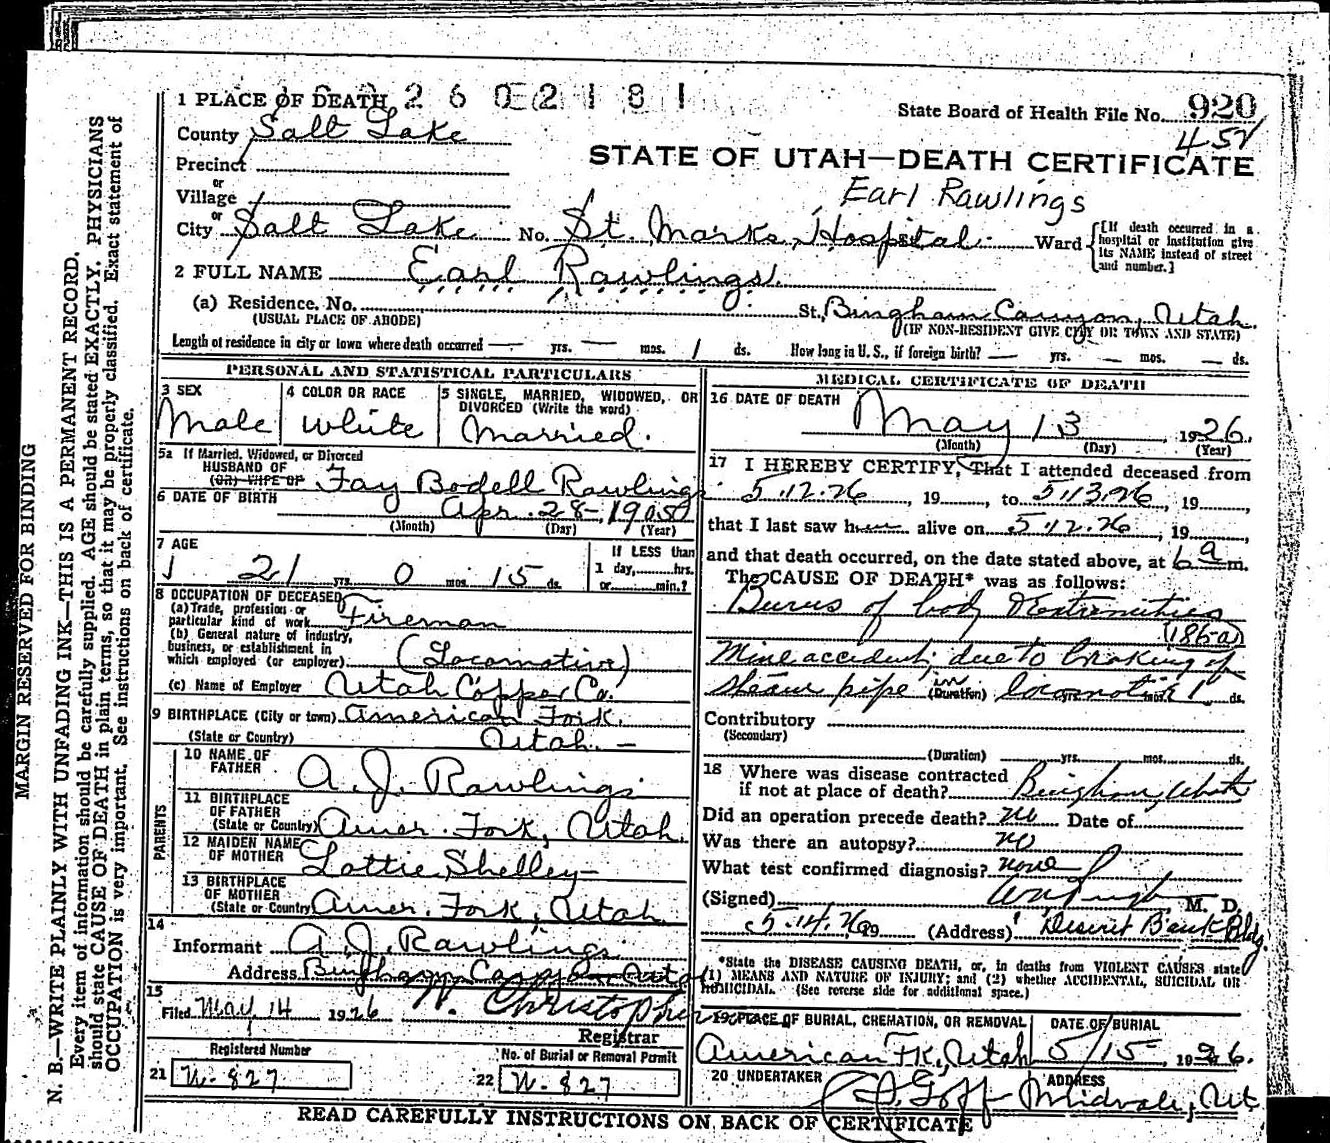 MARGIN RESERVED FOR BINDING
N. B.—WRITE PLAINLY WITH UNFADING INK—THIS IS A PERMANENT RECORD.
Every item of information should be carefully supplied. AGE should be stated EXACTLY. PHYSICIANS
should state CAUSE OF DEATH in plain terms, so that it may be properly classified. Exact statement of
OCCUPATION is very important. See instructions on back of certificate.
1 PLACE OF DEATH 2602181
State Board of Health File No. 920
County Salt Lake
Precinct
STATE OF UTAH—DEATH CERTIFICATE
or
Village
Earl Rawlings
or
City Salt Lake No. St. Marks Hospital Ward
[If death occurred in a hospital or institution give its NAME instead of street and number.]
2 FULL NAME Earl Rawlings
(a) Residence. No. St. Bingham Canyon, Utah.
(USUAL PLACE OF ABODE) (IF NON-RESIDENT GIVE CITY OR TOWN AND STATE)
Length of residence in city or town where death occurred — yrs. — mos. 1 ds. How long in U. S., if foreign birth? — yrs. — mos. — ds.
PERSONAL AND STATISTICAL PARTICULARS
3 SEX Male
4 COLOR OR RACE White
5 SINGLE, MARRIED, WIDOWED, OR DIVORCED (Write the word) Married.
5a If Married, Widowed, or Divorced
HUSBAND OF
(OR) WIFE OF Fay Bodell Rawlings
6 DATE OF BIRTH Apr. 28, 1905
(Month) (Day) (Year)
7 AGE 21 yrs. 0 mos. 15 ds.
If LESS than
1 day,......hrs.
or......min.?
8 OCCUPATION OF DECEASED
(a) Trade, profession or
particular kind of work Fireman
(b) General nature of industry,
business, or establishment in
which employed (or employer) (Locomotive)
(c) Name of Employer Utah Copper Co.
9 BIRTHPLACE (City or town) American Fork.
(State or Country) Utah. —
PARENTS
10 NAME OF
FATHER A. J. Rawlings
11 BIRTHPLACE
OF FATHER
(State or Country) Amer. Fork, Utah.
12 MAIDEN NAME
OF MOTHER Lottie Shelley
13 BIRTHPLACE
OF MOTHER
(State or Country) Amer. Fork, Utah
14
Informant A. J. Rawlings.
Address Bingham Canyon Utah
15
Filed May 14 1926 W. Christopherson
Registrar
Registered Number
21 W-827
No. of Burial or Removal Permit
22 W-827
MEDICAL CERTIFICATE OF DEATH
16 DATE OF DEATH
May 13, 1926.
(Month) (Day) (Year)
17 I HEREBY CERTIFY, That I attended deceased from
5.12.26, 19......, to 5.13.26, 19......,
that I last saw h...... alive on 5.12.26, 19......,
and that death occurred, on the date stated above, at 6 a m.
The CAUSE OF DEATH* was as follows:
Burns of body & extremities
(186-a)
Mine accident; due to breaking of
steam pipe in locomotive (Duration) yrs. mos. 1 ds.
Contributory
(Secondary)
(Duration) yrs. mos. ds.
18 Where was disease contracted
if not at place of death? Bingham, Utah
Did an operation precede death? no Date of
Was there an autopsy? no
What test confirmed diagnosis? none
(Signed) M. D.
5.14.26 19 (Address) Deseret Bank Bldg
*State the DISEASE CAUSING DEATH, or, in deaths from VIOLENT CAUSES state
(1) MEANS AND NATURE OF INJURY; and (2) whether ACCIDENTAL, SUICIDAL OR
HOMICIDAL. (See reverse side for additional space.)
19 PLACE OF BURIAL, CREMATION, OR REMOVAL
American Fk, Utah
DATE OF BURIAL
5/15, 1926.
20 UNDERTAKER Goff
ADDRESS Midvale, Ut
READ CAREFULLY INSTRUCTIONS ON BACK OF CERTIFICATE